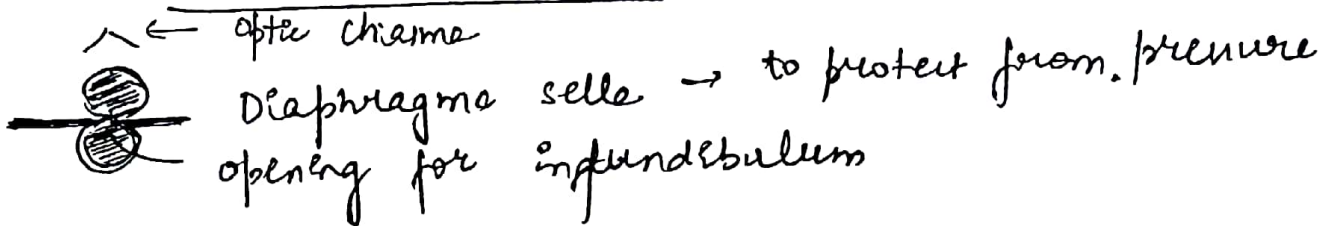 ← optic chiasma
Diaphragma sella → to protect from. pressure
opening for infundibulum